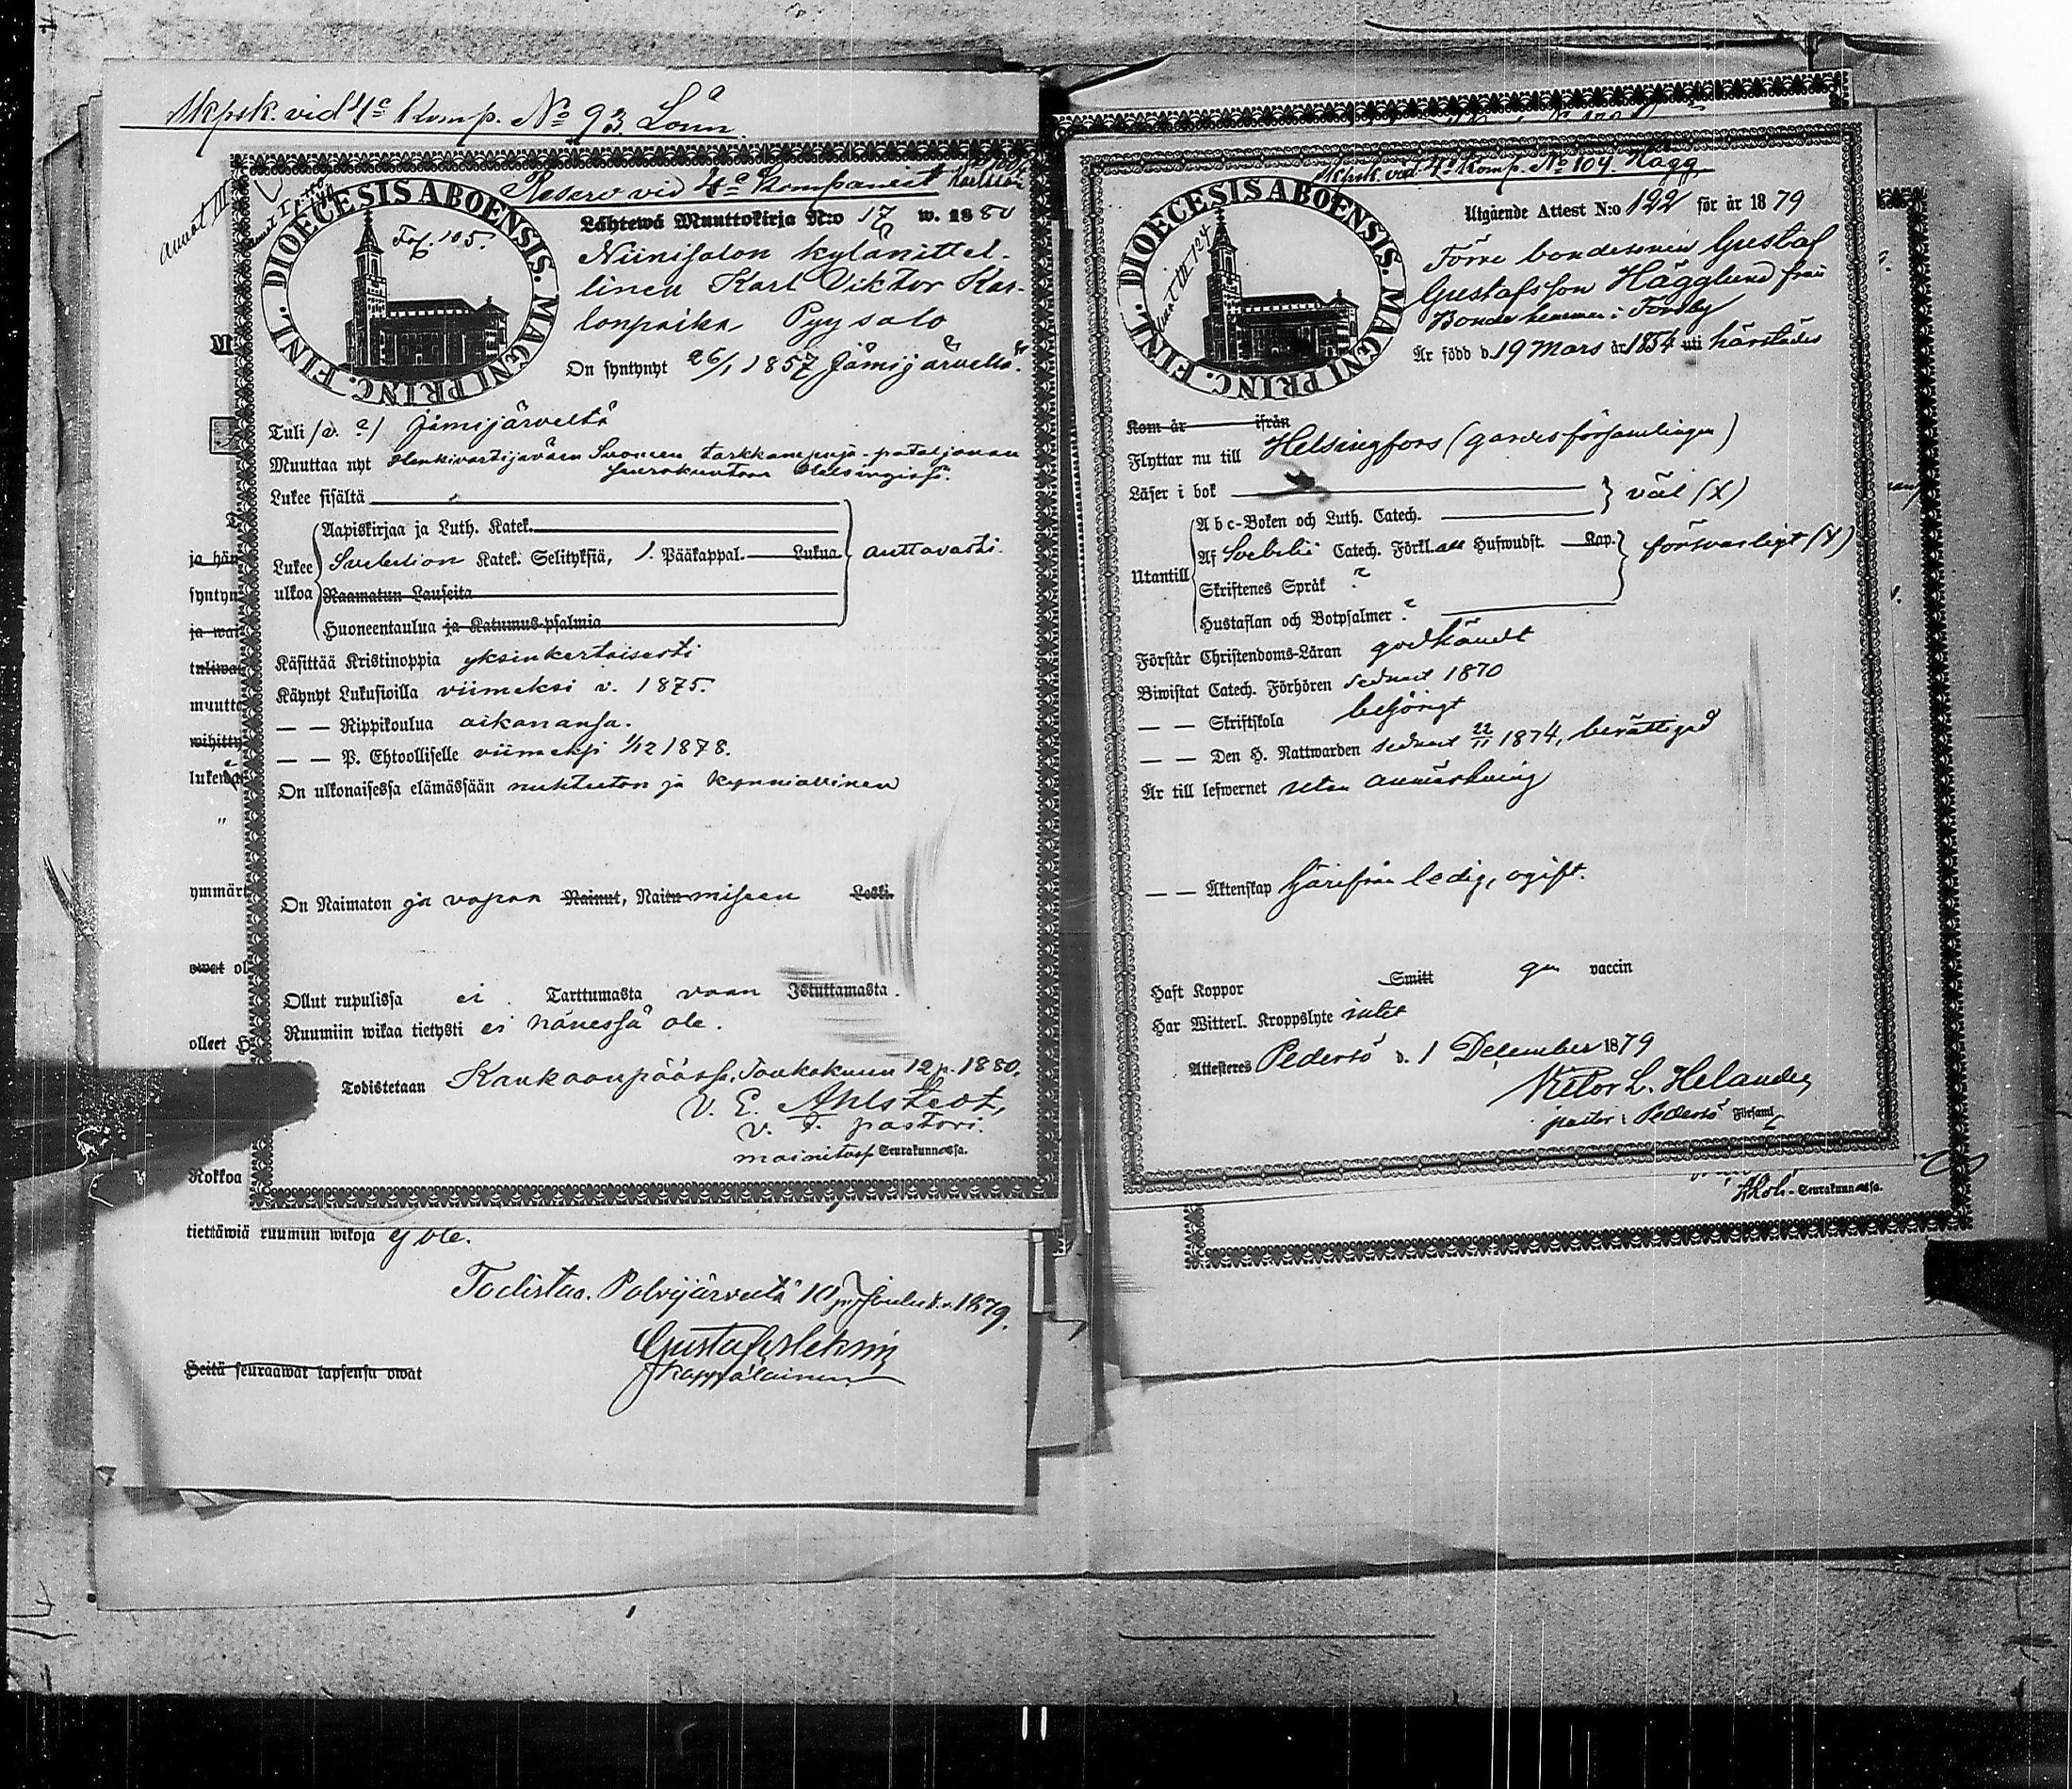 Skpsk. vid 4e Komp. No 93 Lönn.
Reserv vid 4e Kompaniet Karlsson
DIOECESIS ABOENSIS. MAGNI PRINC. FINL.
Fol. 105.
Lähtewä Muuttokirja N:o 17 w. 1880
Niinisalon kylänittel-
linen Karl Viktor Kar-
lonpoika Pyysalo
On syntynyt 26/1 1857 Jämijärvellä.
Tuli (v. ?) Jämijärveltä
Muuttaa nyt Henkivartijaväen Suomen tarkkampuja-pataljonan
seurakuntaan Helsingissä.
Lukee sisältä
Aapiskirjaa ja Luth. Katek.
Lukee Svebelion Katek. Selityksiä, 1. Pääkappal. Lukua auttavasti.
ulkoa Raamatun Lauseita
Huoneentaulua ja Katumus-psalmia
Käsittää Kristinoppia yksinkertaisesti
Käynyt Lukusioilla viimeksi v. 1875.
— — Rippikoulua aikanansa.
— — P. Ehtoolliselle viimeksi 1/12 1878.
On ulkonaisessa elämässään nuhteeton ja kunniallinen
On Naimaton ja vapaa Nainut, Naimiseen Leski.
Ollut rupulissa ei Tarttumasta vaan Istuttamasta.
Ruumiin wikaa tietysti ei hänessä ole.
Todistetaan Kankaanpäässä, Toukokuun 12 p. 1880.
V. E. Ahlstedt,
v. t. pastori.
mainituss Seurakunnassa.
ja hän
syntyn
ja wai
tuliwa
muutta
wihitty
luken
"
ymmärt
owat ol
olleet
Rokkoa
tiettäwiä ruumiin wikoja ej ole.
Todistaa. Polvijärveltä 10 p. Jouluk. 1879.
Kappalainen
Heitä seuraawat lapsensa owat
Skpsk. vid 4e Komp. No 104. Hägg
DIOECESIS ABOENSIS. MAGNI PRINC. FINL.
Utgående Attest N:o 122 för år 1879
Förre bondesonen Gustaf
Gustafsson Hägglund från
Bonde hemman i Forsby
Är född d. 19 Mars år 1854 uti härstädes
Kom år ifrån
Flyttar nu till Helsingfors (gardesförsamlingen)
Läser i bok väl (X)
A b c-Boken och Luth. Catech.
Utantill Af Svebilii Catech. Förkl. all Hufwudst. Kap. försvarligt (X)
Skriftenes Språk ?
Hustaflan och Botpsalmer ?
Förstår Christendoms-Läran godkändt
Biwistat Catech. Förhören sednast 1870
— — Skriftskola behörigt
— — Den H. Nattwarden sednast 22/11 1874, berättigad
Är till lefwernet utan anmärkning
— — Äktenskap härifrån ledig, ogift.
Haft Koppor Smitt gm vaccin
Har Witterl. Kroppslyte intet
Attesteres Pedersö d. 1 December 1879
Viktor L. Helander
pastor i Pedersö Församl.
Seurakunnassa.